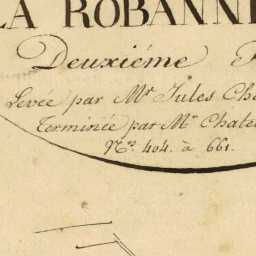 LA ROBANN
Deuxiéme
Levée par Mr Jules Ch
Terminée par Mr Chate
Nos. 404. à 661.